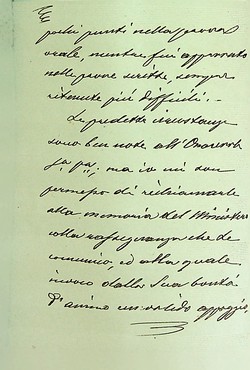 pochi punti nella prova
orale, mentre fui approvato
nelle prove scritte, sempre
ritenute più difficili. -
Le predette circostanze
sono ben note all'Onorevole
ma io mi son
permesso di richiamarle
alla memoria del Ministro
colla che
comunico, ed alla quale
invoco dalla Sua bontà
d'animo un valido appoggio.